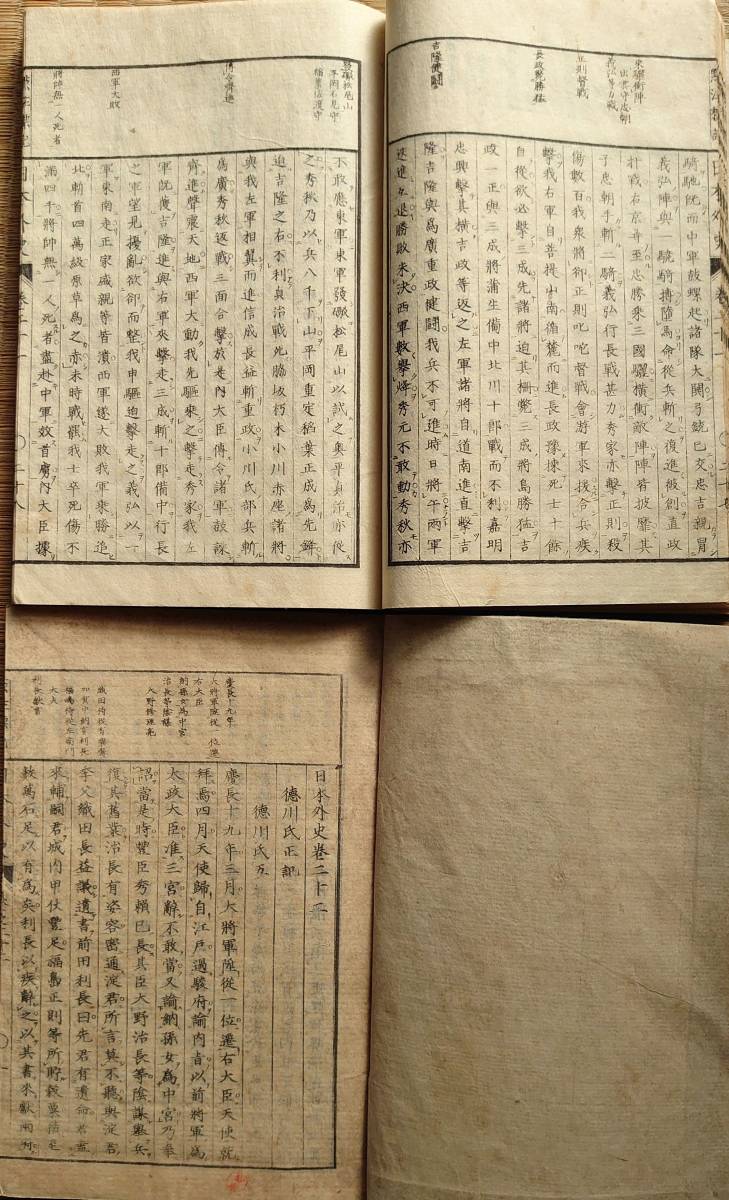 東礫衝陣
出雲守忠朝
義弘等力戰
正則督戰
長政競勝猛
吉隆健鬪
騎馳既而中軍鼓螺起諸隊大鬨弓銃已交忠吉親冒
義弘陣與一驍騎搏墮馬命從兵斬之復進被創直政
扞戰右京亦至忠勝乘三國驪橫衝敵陣陣皆披靡其
子忠朝手斬二騎義弘行長戰甚力秀家亦擊正則殺
傷數百我衆將卻正則叱咤督戰會游軍來援令兵疾
擊我右軍自菩提山南循麓而進長政豫揀死士十餘
自從欲必擊三成先諸將迫其柵斃三成將島勝猛吉
政一正與三成將蒲生備中北川十郎戰而不利嘉明
忠興擊其橫吉政等返之左軍諸將自道南進直擊吉
隆吉隆與爲廣重政健鬪我兵不可進時日將午兩軍
迭進迭退勝敗未決西軍數擧烽秀元不敢動秀秋亦
發礮松尾山
平岡石見守
稻葉佐渡守
傳令齊進
西軍大敗
將帥無一人死者
不敢應東軍東軍發礮松尾山以試之奧平貞治亦從
之秀秋乃以兵八千下山平岡重定稻葉正成爲先鋒
迫吉隆之右不利貞治戰死脇坂朽木小川赤座諸將
與我左軍相翼而進信成長益斬重政小川氏部兵斬
爲廣秀秋返戰三面合擊敵走內大臣傳令諸軍鼓譟
齊進聲震天地西軍大動我先驅乘之擊走秀家我左
軍既獲吉隆進與右軍夾擊走三成斬十郎備中行長
之軍望見擾亂欲卻而整我申驅迫擊走之義弘以一
軍東南走正家盛親等皆潰西軍遂大敗我軍乘勝追
北斬首四萬級原草爲之赤未時戰罷我士卒死傷不
滿四千將帥無一人死者盡赴中軍效首虜內大臣據
慶長十九年
大將軍陞從一位遷
右大臣
納孫女爲中宮
治長等陰謀
大野修理亮
利長獻書
日本外史卷二十二
德川氏正記
德川氏五
慶長十九年三月大將軍陞從一位遷右大臣天使就
拜焉四月天使歸自江戶過駿府諭內旨以前將軍爲
太政大臣准三宮辭不敢當又諭納孫女爲中宮乃奉
詔當是時豐臣秀賴已長其臣大野治長等陰謀擧兵
復其舊業治長有姿容密通淀君所言莫不聽與淀君
季父織田長益議遺書前田利長曰先君有遺命君盍
來輔嗣君城內甲仗豐足福島正則等所貯穀粟
數萬石足以有爲矣利長以疾辭之以其書來獻兩府